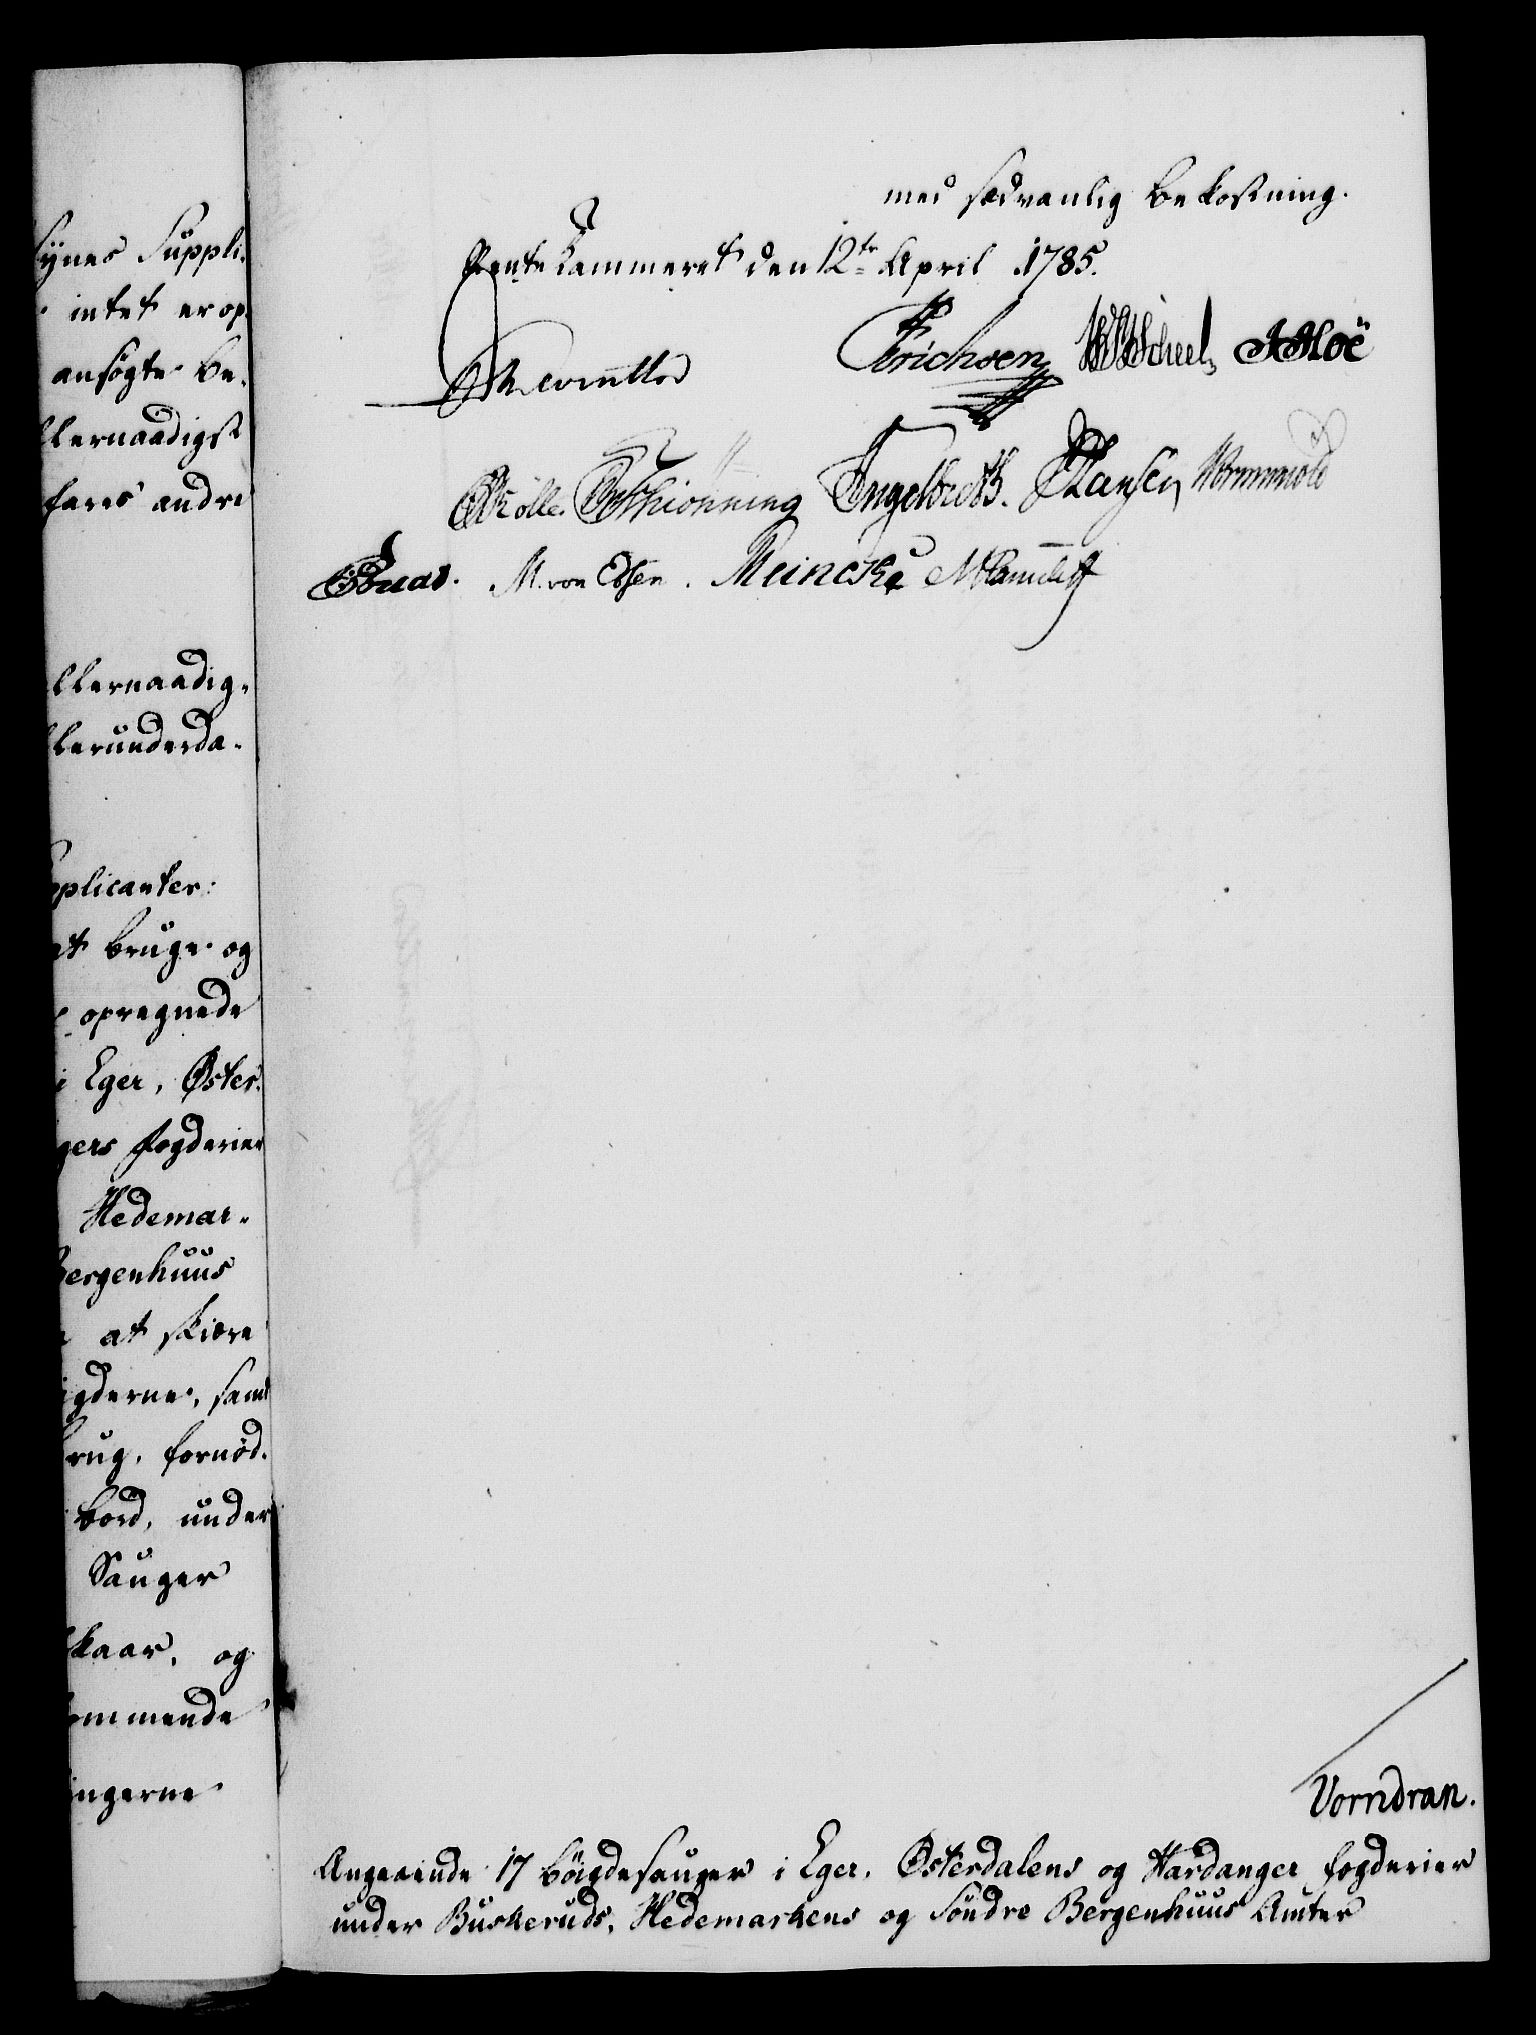 synes Suppli-
intet er op-
ansøgte Be-
llernaadigst
fares andre
llernaadig-
llerunderda-
pplicanter:
at bruge og
opregnede
i Eger, Øster-
gers fogderier
Hedemar-
Bergenhuus
at skiære
igderne, samt
rug, fornød-
bord, under
Sauger
lkaar, og
ommende
ingerne
med sædvanlig bekostning.
Rentekammeret den 12te April 1785.
Erichsen Scheel
Schiønning Engelbreth. Hansen
M. von Essen. Meincke
Vorndran.
Angaaende 17 bøigdesauger i Eger, Østerdalens og Hardanger fogderier
under Buskeruds, Hedemarkens og Søndre Bergenhuus Amter